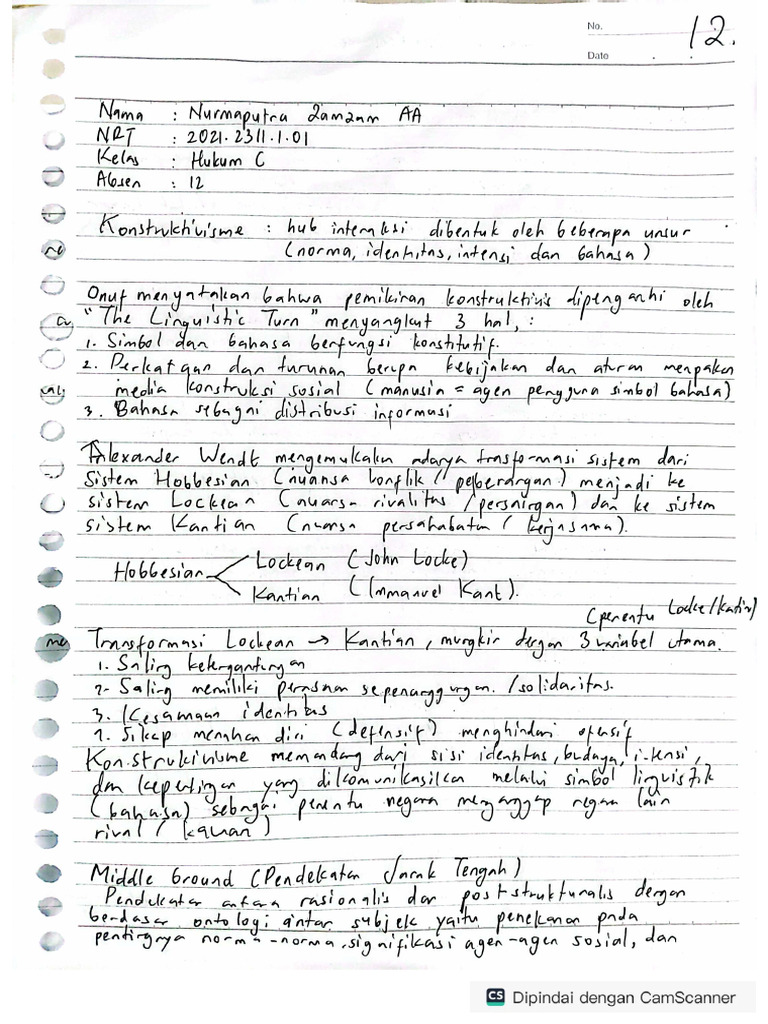 No.
12.
Date
Nama : Nurmaputra Zamzam AA
NRT : 2021.2311.1.01
Kelas : Hukum C
Absen : 12
Konstruktivisme : hub interaksi dibentuk oleh beberapa unsur
(norma, identitas, intensi dan bahasa)
Onuf menyatakan bahwa pemikiran konstruktivis dipengaruhi oleh
"The Linguistic Turn" menyangkut 3 hal, :
1. Simbol dan bahasa berfungsi konstitutif.
2. Perkataan dan turunan berupa kebijakan dan aturan merupakan
media konstruksi sosial (manusia = agen pengguna simbol bahasa)
3. Bahasa sebagai distribusi informasi
Alexander Wendt mengemukakan adanya transformasi sistem dari
Sistem Hobbesian (nuansa konflik / peperangan) menjadi ke
sistem Lockean (nuansa rivalitas / persaingan) dan ke sistem
sistem Kantian (nuansa persahabatan / kerjasama).
Hobbesian
Lockean (John Locke)
Kantian (Immanuel Kant).
(penentu Locke/Kantian)
Transformasi Lockean → Kantian, mungkin dengan 3 variabel utama.
1. Saling ketergantungan
2- Saling memiliki perasaan sepenanggungan. /solidaritas.
3. Kesamaan identitas
1. Sikap menahan diri (defensif) menghindari ofensif
Konstruktivisme memandang dari sisi identitas, budaya, intensi,
dan kepentingan yang dikomunikasikan melalui simbol linguistik
(bahasa) sebagai penentu negara menganggap negara lain
rival / kawan)
Middle Ground (Pendekatan Jarak Tengah)
Pendekatan antara rasionalis dan post-strukturalis dengan
berdasar ontologi antar subjek yaitu penekanan pada
pentingnya norma-norma, signifikasi agen-agen sosial, dan
CS Dipindai dengan CamScanner